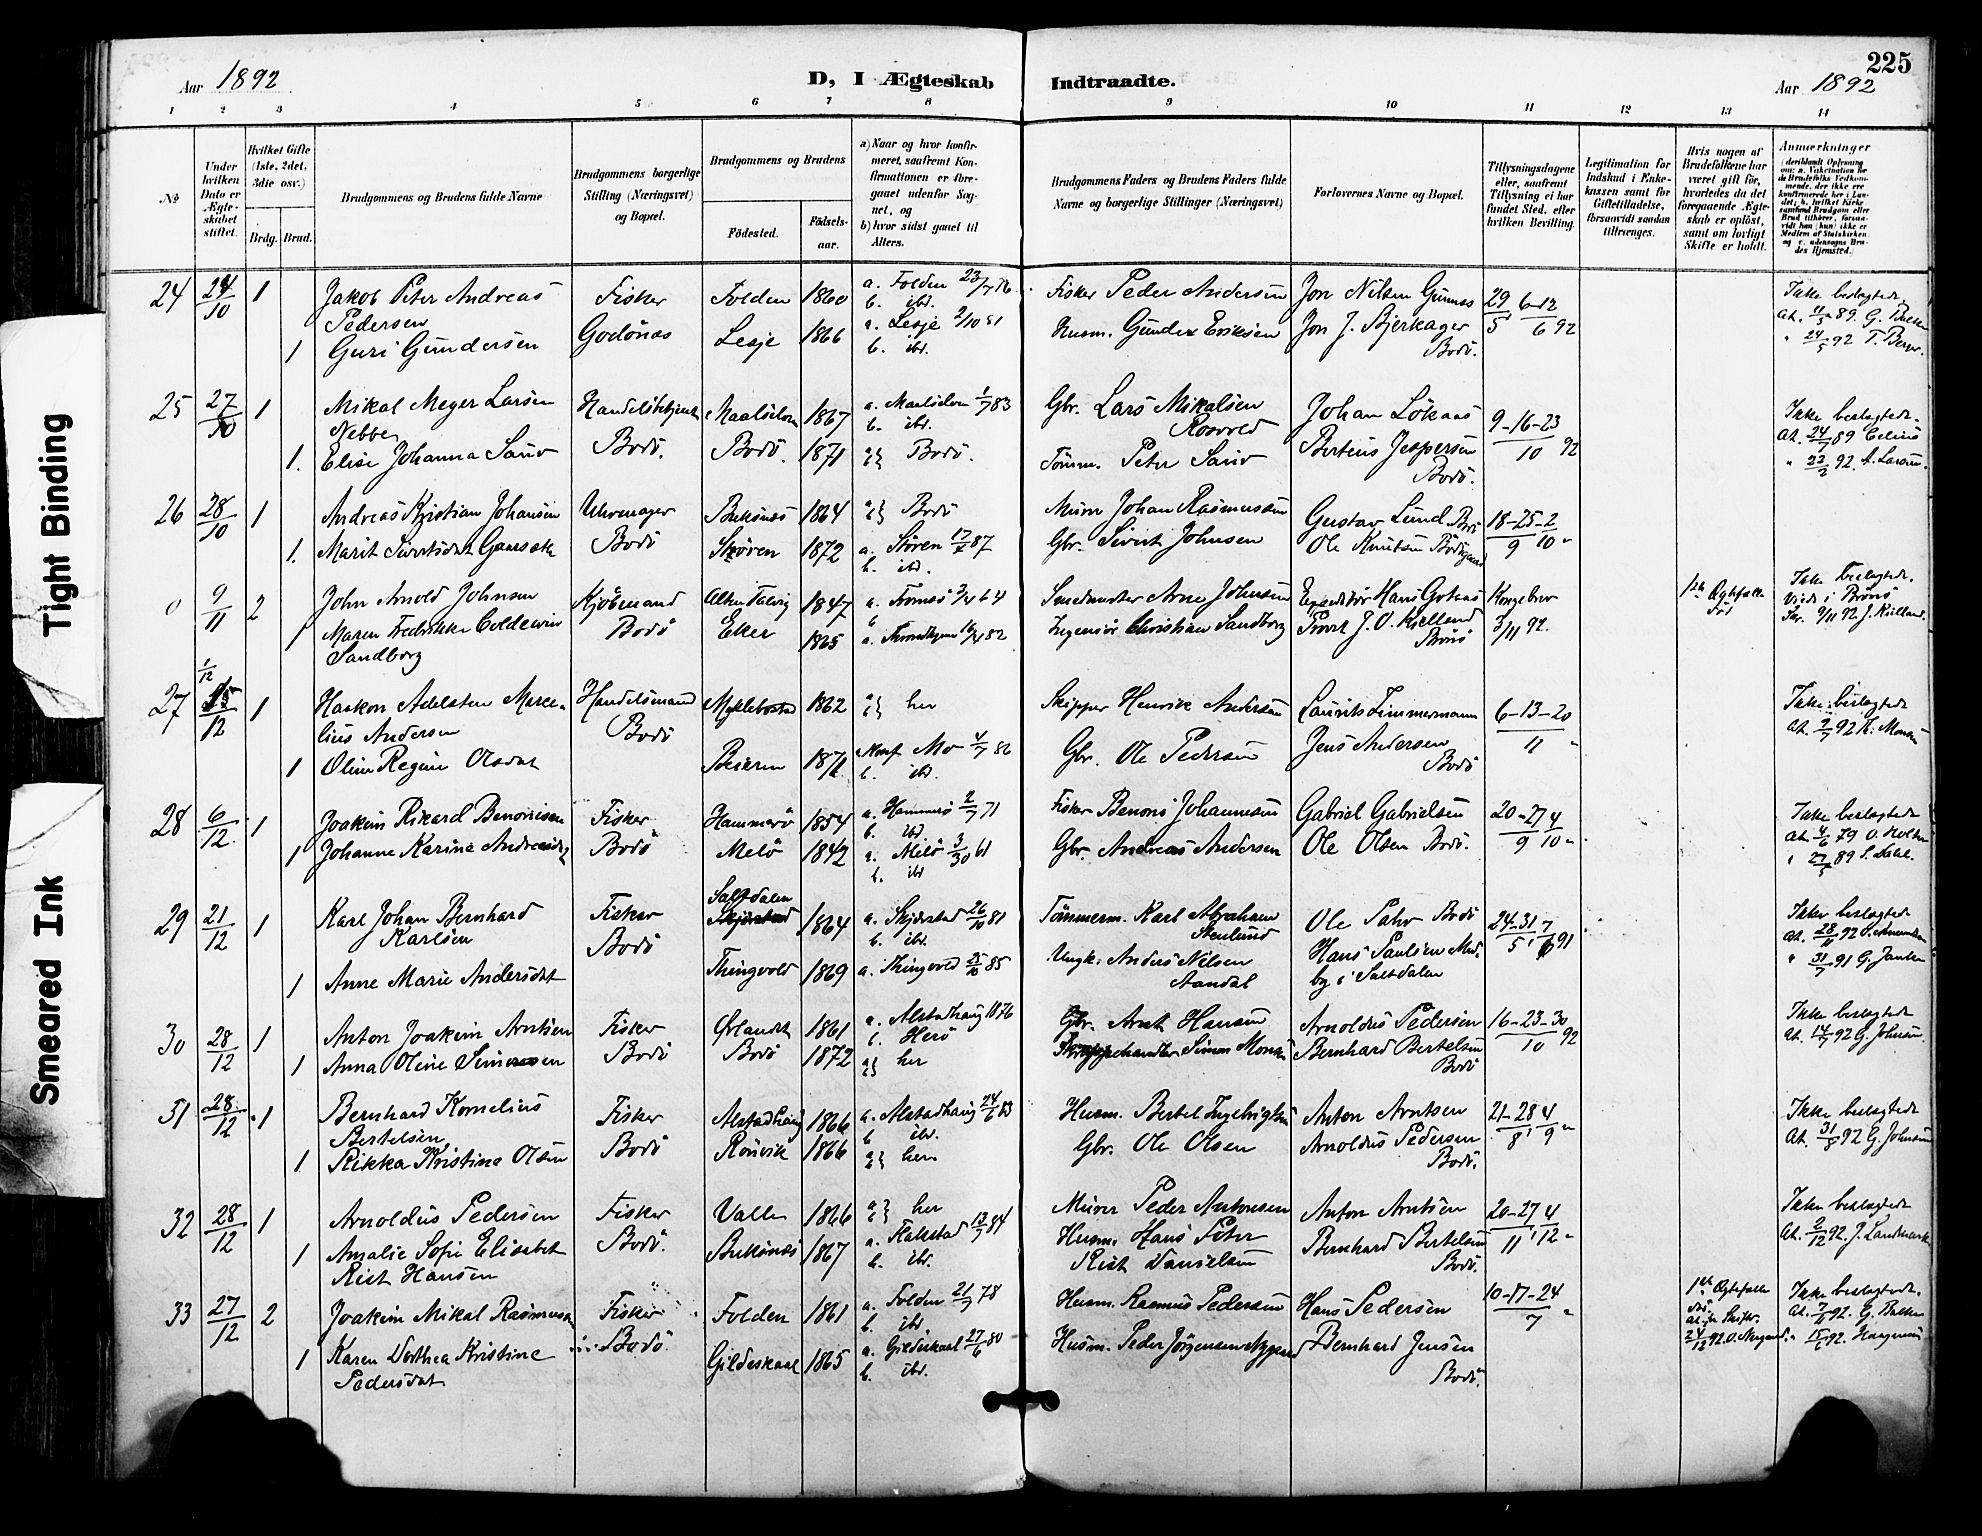 225
Aar 1892
D, I Ægteskab Indtraadte.
Aar 1892
1 2 3 4 5 6 7 8 9 10 11 12 13 14
№
Under hvilken Dato er Ægteskabet stiftet.
Hvilket Gifte (1ste, 2det, 3die osv.)
Brdg. Brud.
Brudgommens og Brudens fulde Navne
Brudgommens borgerlige Stilling (Næringsvei) og Bopæl.
Brudgommens og Brudens
Fødested.
Fødsels-aar.
a) Naar og hvor konfirmeret, saafremt Konfirmationen er foregaaet udenfor Sognet, og
b) hvor sidst gaaet til Alters.
Brudgommens Faders og Brudens Faders fulde Navne og borgerlige Stillinger (Næringsvei)
Forlovernes Navne og Bopæl.
Tillysningsdagene eller, saafremt Tillysning ei har fundet Sted, efter hvilken Bevilling.
Legitimation for Indskud i Enkekassen samt for Giftetilladelse, forsaavidt saadan tiltrænges.
Hvis nogen af Brudefolkene har været gift før, hvorledes da det foregaaende Ægteskab er opløst, samt om lovligt Skifte er holdt.
Anmærkninger
24 24/10 1 Jakob Peter Andreas Pedersen Fisker Folden 1860 a. Folden 23/7 76 b. ibd. Fisker Peder Andersen Jon Nilsen 29/5 6-12/6 92 Ikke beslægtede
1 Guri Gundersen Godønes Lesje 1866 a. Lesje 2/10 81 b. ibd. Husm. Gunder Eriksen Jon J. Bjerkager Bodø. At. 11/3 89. G. " 24/5 92
25 27/10 1 Mikal Meyer Larsen Nebbe Handelsbetjent Maalselven 1867 a. Maalselven 1/7 83 b. ibd. Gbr. Lars Mikalsen Rosvold Johan Lökaas 9-16-23/10 92 Ikke beslægtede.
1. Elise Johanna Sand Bodø. Bodø. 1871 a b} Bodø. Tømm. Peter Sand Berteus Jespersen Bodø. At. 24/7 89 " 22/2 92. A. Larsen.
26 28/10 1 Andreas Kristian Johansen Uhrmager Buksnæs 1864 a b} Bodø Murer Johan Rasmussen Gustav Lund Bodø 18-25/9 2/10 "
1. Marit Sivertsdat Bodø Støren 1872 a. Støren 87 b. ibd. Gbr. Sivert Johnsen Ole Knutsen Bodøgaard
0 9/11 2 John Arnold Johnsen Kjøbmand Alten Talvig 1847 a. Tromsø 64 b Smedmester Arne Johnsen Expeditør Hans Kongebrev 3/11 92. 1ste Ægtefælle død Ikke beslægtede.
1 Maren Fredrikke Coldevin Sandborg Bodø Eker 1865 a. Throndhjem 82 Ingeniør Christian Sandborg Provst J. O. Kielland Brønø Viede i Brønø 9/11 92. J. Kielland.
27 1/12 1 Haakon Adelsten Marcelius Andersen Handelsmand Myklebostad 1862 a b} her Skipper Henrik Andersen Laurits Zimmermann 6-13-20/11 " Ikke beslægtede
1 Oline Regine Olsdat Bodø Beieren 1871 Konf. Mo 4/7 86 b. ibd. Gbr. Ole Pedersen Jens Andersen Bodø At. 2/7 92
28 6/12 1 Joakim Rikard Benonisen Fisker Hammerø 1854 a. Hammerø 2/7 71 b. ibd. Fisker Benoni Johannesen Gabriel Gabrielsen 20-27/9 4/10 " Ikke beslægtede
1 Johanne Karina Andreasdat Bodø Melø 1842 a. Melø 61 b. ibd Gbr. Andreas Andersen Ole Olsen Bodø. At. 4/6 79 " 27/5 89 S. Dahl.
29 21/12 1 Karl Johan Bernhard Karlsen Fisker Saltdalen 1864 a. Skjerstad 26/10 81 b. ibd. Tømmerm. Karl Abraham Stenlund Ole Bodø 24-31/5 7/6 91 Ikke beslægtede
1 Anne Marie Andersdat Bodø Thingvold 1869 a. Thingvold 25/10 85 Ungk. Anders Nilsen Aandal Hans Paulsen Medby i Saltdalen At. 28/11 92 " 31/7 91 G. Jantzen
30 28/12 1 Anton Joakim Arntsen Fisker Ørlandet 1861 a. Alstadhaug 1876 b. Herø Gbr. Arnt Hansen Arnoldus Pedersen 16-23-30/10 92 Ikke beslægtede
1 Anna Oline Simonsen Bodø Bodø 1872 a b} her Simon Monsen Bernhard Bertelsen Bodø At. 14/7 92 G. Johnsen.
31 28/12 1 Bernhard Kornelius Bertelsen Fisker Alstadhaug 1866 a. Alstadhaug 24/6 83 b ibd. Husm. Bertel Ingebrigtsen Anton Arntsen 21-28/8 4/9 " Ikke beslægtede
1 Rikka Kristina Olsen Bodø Rönvik 1866 a b} her Gbr. Ole Olsen Arnoldus Pedersen Bodø. At. 31/8 92 G. Johnsen
32 28/12 1 Arnoldus Pedersen Fisker Valle 1866 a b} her Murer Peder Antonsen Anton Arntsen 20-27/11 4/12 " Ikke beslægtede
1 Amalie Sofie Elisabet Rist Hansen Bodø. Buksnæs 1867 a. Flakstad 13/7 84 b. ibd. Husm. Hans Peter Rist Danielsen Bernhard Bertelsen Bodø. At. 2/12 92. J. Landmark
33 27/12 2 Joakim Mikal Rasmussen Fisker Folden 1861 a. Folden 21/7 78 b. ibd Husm. Rasmus Pedersen Hans Pedersen 10-17-24/7 " 1ste Ægtefælle død Ikke beslægtede.
1 Karen Dorthea Kristine Pedersdat Bodø. Gildeskaal 1865 a. Gildeskaal 27/6 80 b. ibd. Husm. Peder Jørgensen Bernhard Jensen Bodø. 24/12 92. At. 92. G. " 15/6 92.
Tight Binding
Smeared Ink